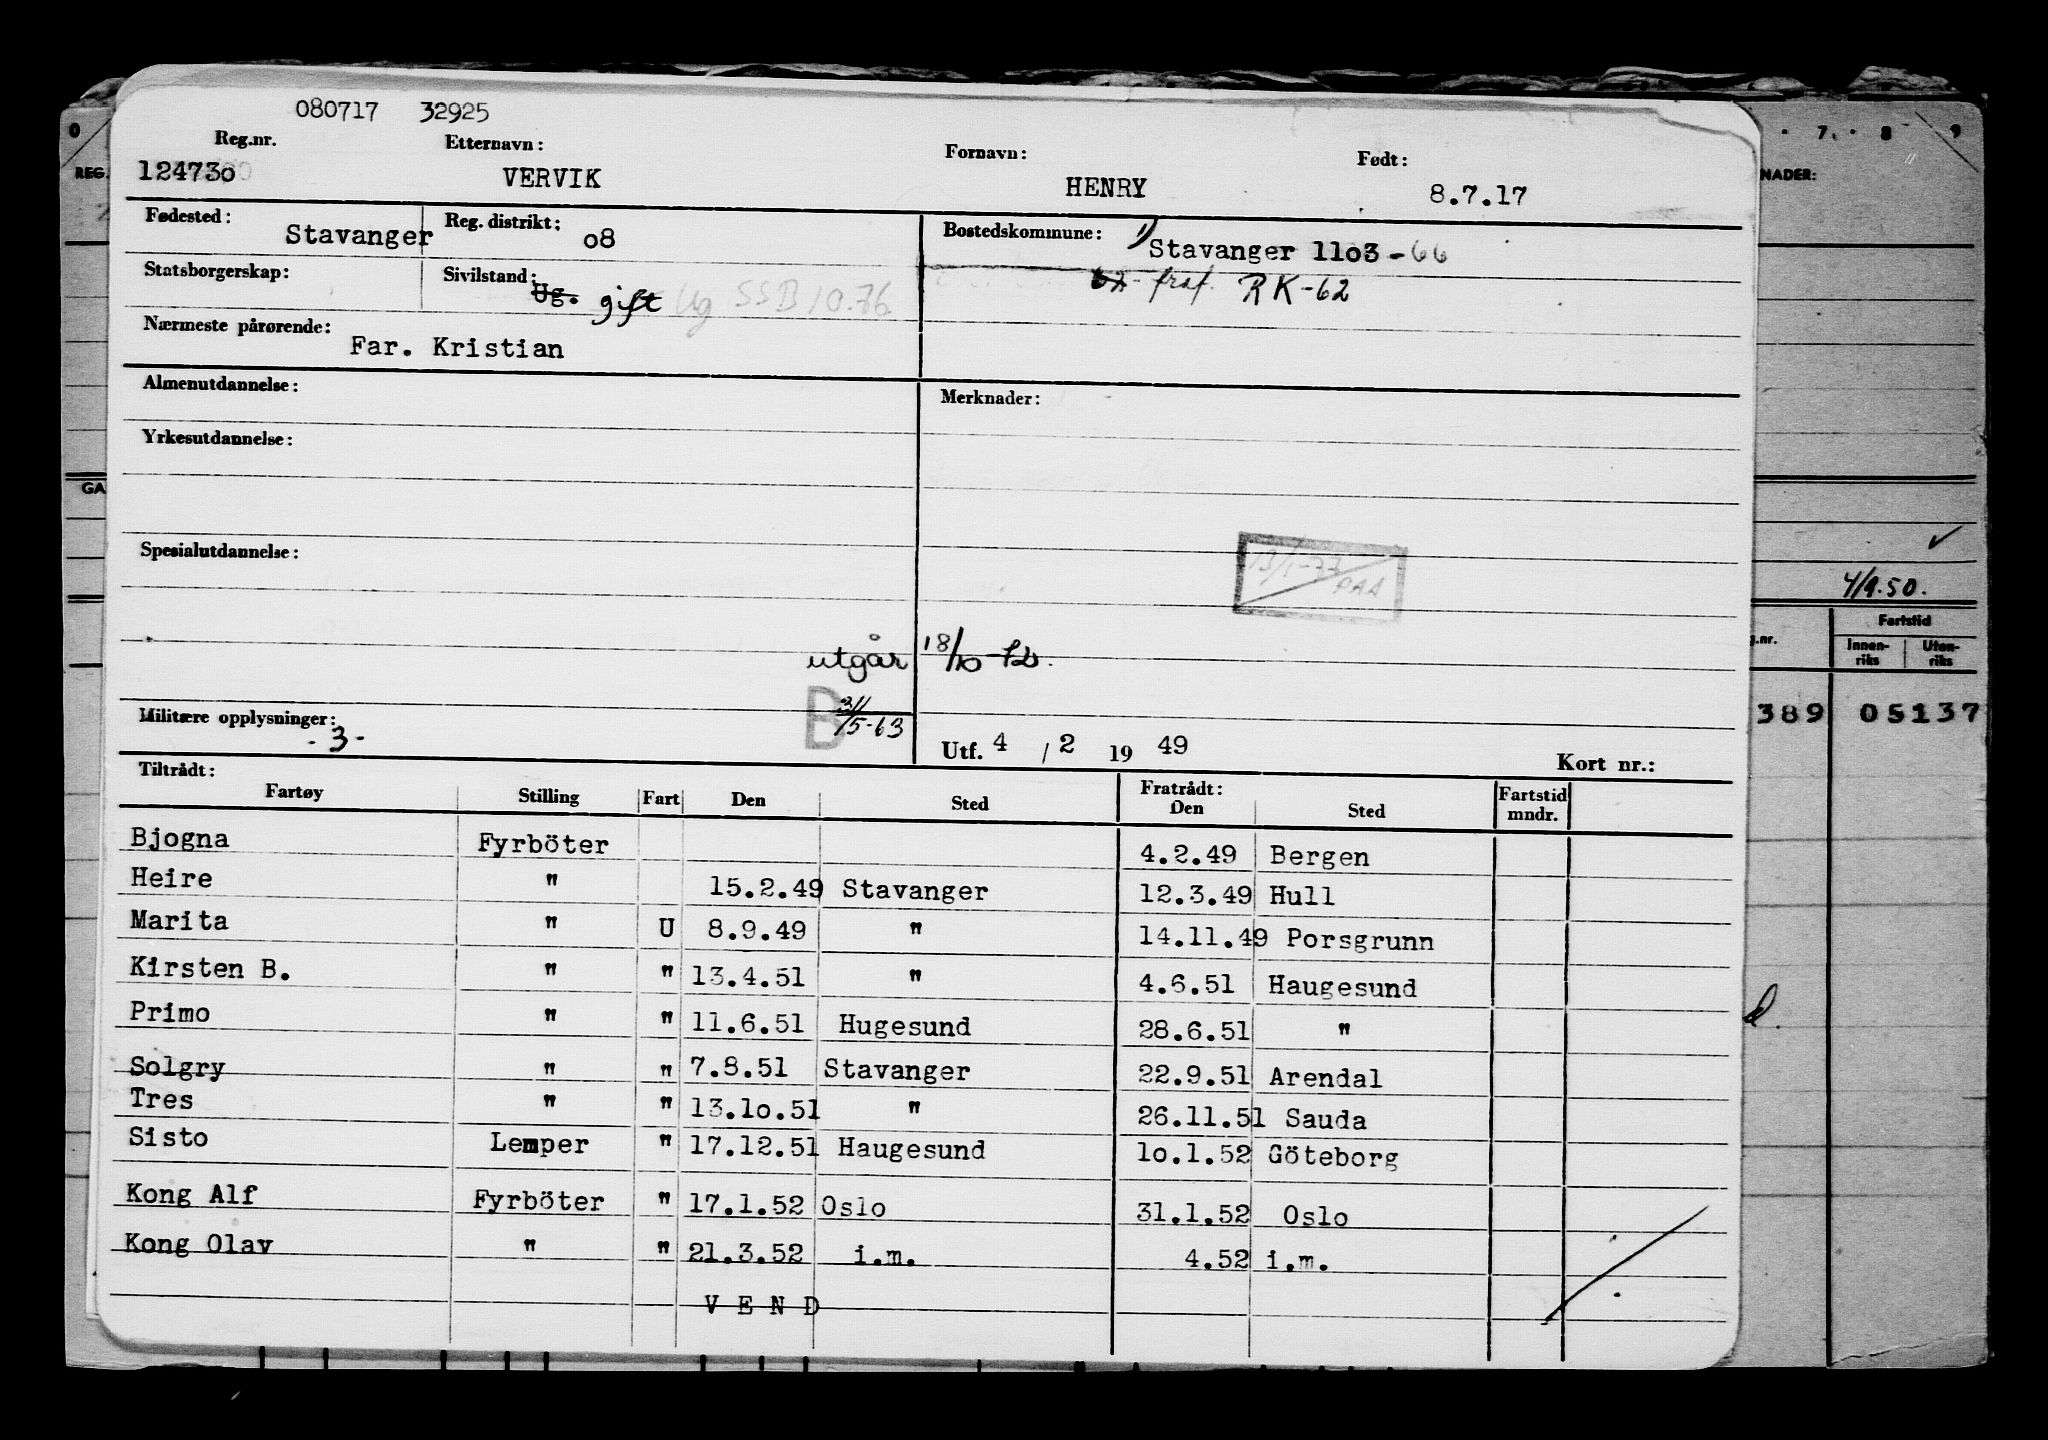 080717 32925
Reg.nr. Etternavn: Fornavn: Født:
124730 VERVIK HENRY 8.7.17
Fødested: Stavanger Reg. distrikt: 08 Bostedskommune: 1) Stavanger 1103 - 66
Statsborgerskap: Sivilstand: Ug. gift Ug SSB 10.76 fraf. RK-62
Nærmeste pårørende:
Far. Kristian
Almenutdannelse: Merknader:
Yrkesutdannelse:
Spesialutdannelse:
13/1-77
PAA
utgår 18/10
Militære opplysninger: -3- B 31/5-63
Utf. 4 / 2 19 49 Kort nr.:
Tiltrådt: Fratrådt:
Fartøy Stilling Fart Den Sted Den Sted Fartstid mndr.
Bjogna Fyrböter 4.2.49 Bergen
Heire " 15.2.49 Stavanger 12.3.49 Hull
Marita " U 8.9.49 " 14.11.49 Porsgrunn
Kirsten B. " " 13.4.51 " 4.6.51 Haugesund
Primo " " 11.6.51 Hugesund 28.6.51 "
Solgry " " 7.8.51 Stavanger 22.9.51 Arendal
Tres " " 13.10.51 " 26.11.51 Sauda
Sisto Lemper " 17.12.51 Haugesund 10.1.52 Göteborg
Kong Alf Fyrböter " 17.1.52 Oslo 31.1.52 Oslo
Kong Olav " " 21.3.52 i.m. 4.52 i.m.
V E N D
0
REG.
GA
7 8 9
NADER:
4/9.50.
Fartstid
.nr. Innen-riks Uten-riks
389 05137
d.